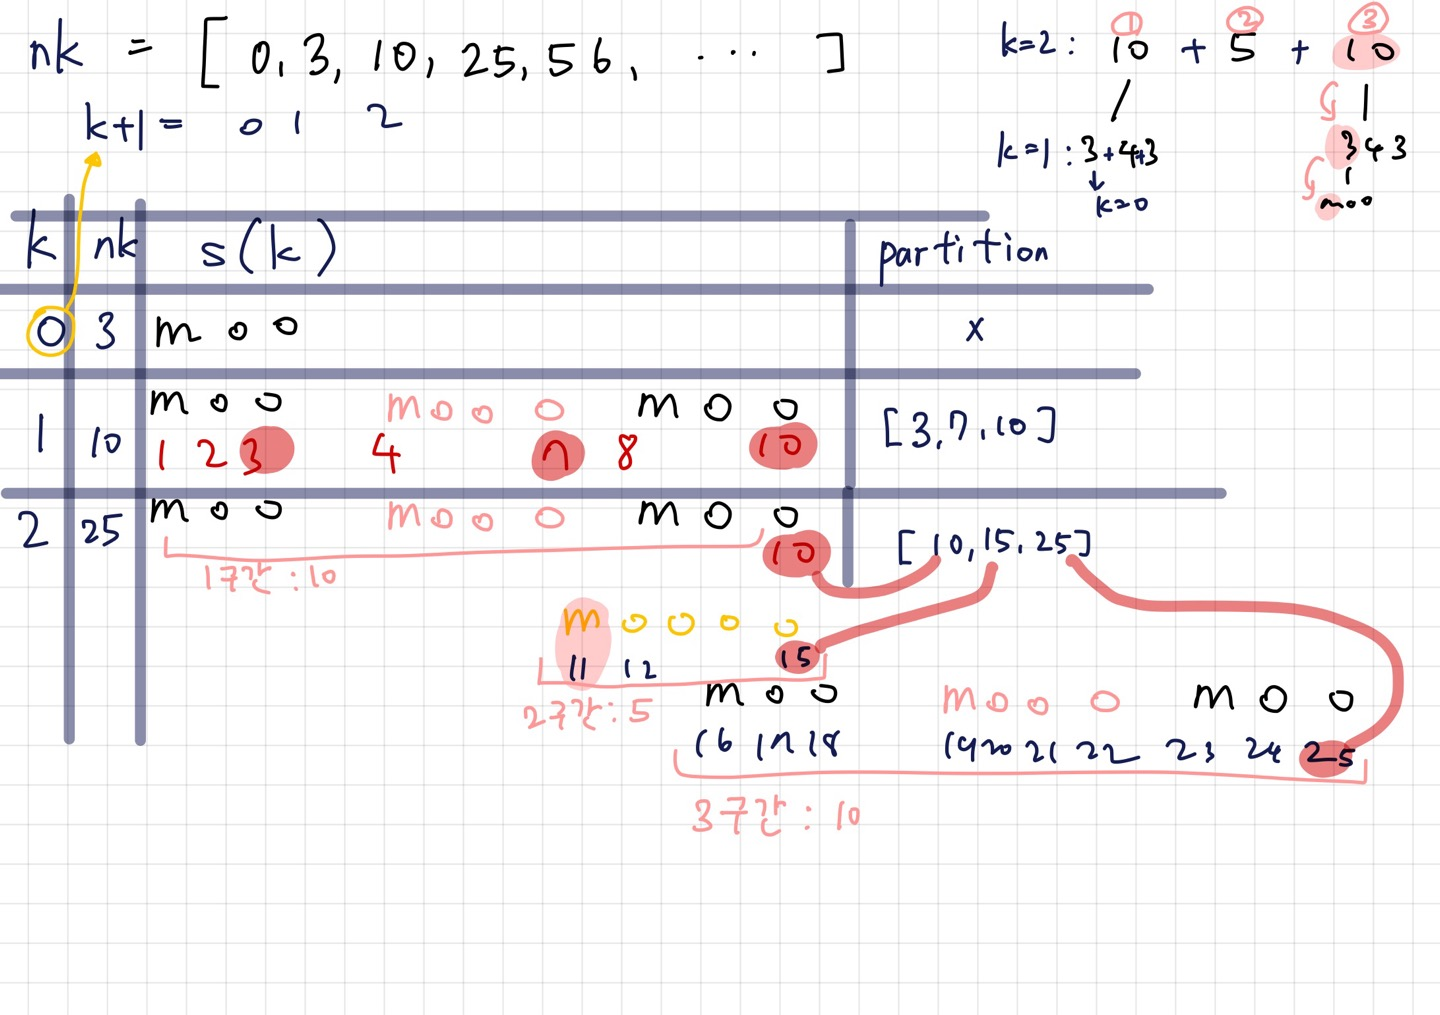 nk = [ 0, 3, 10, 25, 56, ... ]
k+1 = 0 1 2
① ② ③
k=2 : 10 + 5 + 10
k=1 : 3+4+3
k=0
3 4 3
moo
k nk s(k) partition
0 3 m o o x
1 10 m o o m o o o m o o [3, 7, 10]
1 2 3 4 7 8 10
2 25 m o o m o o o m o o [10, 15, 25]
10
1구간 : 10
m o o o o
11 12 15
2구간 : 5
m o o m o o o m o o
16 17 18 19 20 21 22 23 24 25
3구간 : 10